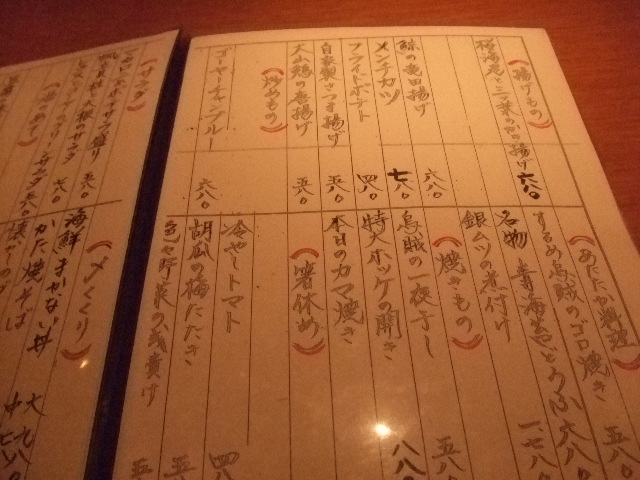 （揚げもの）
桜海老と三つ葉のかき揚げ 六八〇
鯨の竜田揚げ 六八〇
メンチカツ 七八〇
フライドポテト 四八〇
自家製さつま揚げ 五八〇
大山鶏の唐揚げ 五八〇
（炒めもの）
ゴーヤーチャンプルー 六八〇
（あたたか料理）
するめ烏賊のゴロ焼き 五八〇
名物 青海苔どうふ 六八〇
銀ムツの煮付け 一七八〇
（焼きもの）
烏賊の一夜干し 五八〇
特大ホッケの開き 八八〇
本日のカマ焼き
（箸休め）
冷やしトマト 四八
胡瓜の梅たたき 五
色々野菜の浅漬け 五
（サラダ）
（〆くくり）
海鮮まかない丼
かた焼そば 大 九八〇
中 七八〇